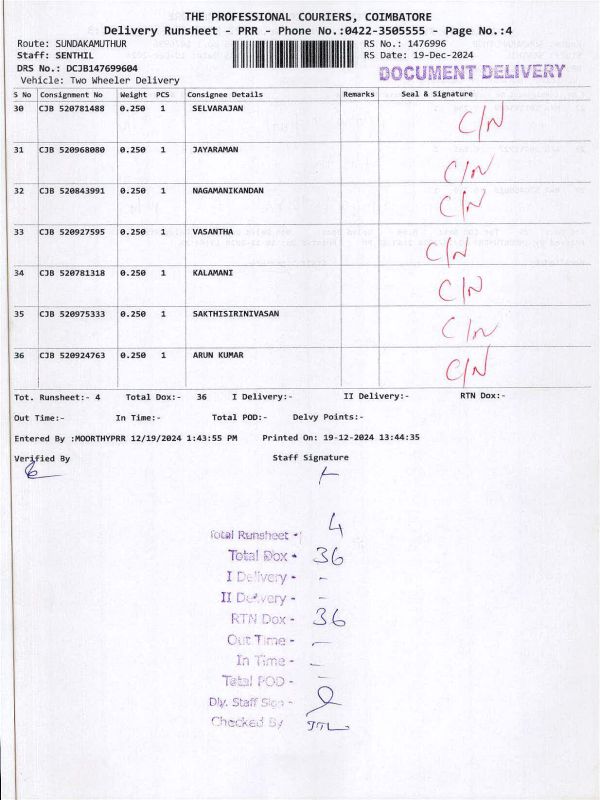 THE PROFESSIONAL COURIERS, COIMBATORE
Delivery Runsheet - PRR - Phone No.:0422-3505555 - Page No.:4
Route: SUNDAKAMUTHUR RS No.: 1476996
Staff: SENTHIL RS Date: 19-Dec-2024
DRS No.: DCJB147699604 DOCUMENT DELIVERY
Vehicle: Two Wheeler Delivery
S No Consignment No Weight PCS Consignee Details Remarks Seal & Signature
30 CJB 520781488 0.250 1 SELVARAJAN C/N
31 CJB 520968080 0.250 1 JAYARAMAN C/N
32 CJB 520843991 0.250 1 NAGAMANIKANDAN C/N
33 CJB 520927595 0.250 1 VASANTHA C/N
34 CJB 520781318 0.250 1 KALAMANI C/N
35 CJB 520975333 0.250 1 SAKTHISIRINIVASAN C/N
36 CJB 520924763 0.250 1 ARUN KUMAR C/N
Tot. Runsheet:- 4 Total Dox:- 36 I Delivery:- II Delivery:- RTN Dox:-
Out Time:- In Time:- Total POD:- Delvy Points:-
Entered By :MOORTHYPRR 12/19/2024 1:43:55 PM Printed On: 19-12-2024 13:44:35
Verified By Staff Signature
Total Runsheet - 4
Total Dox - 36
I Delivery - -
II Delivery - -
RTN Dox - 36
Out Time - -
In Time - -
Total POD - -
Dly. Staff Sign -
Checked By